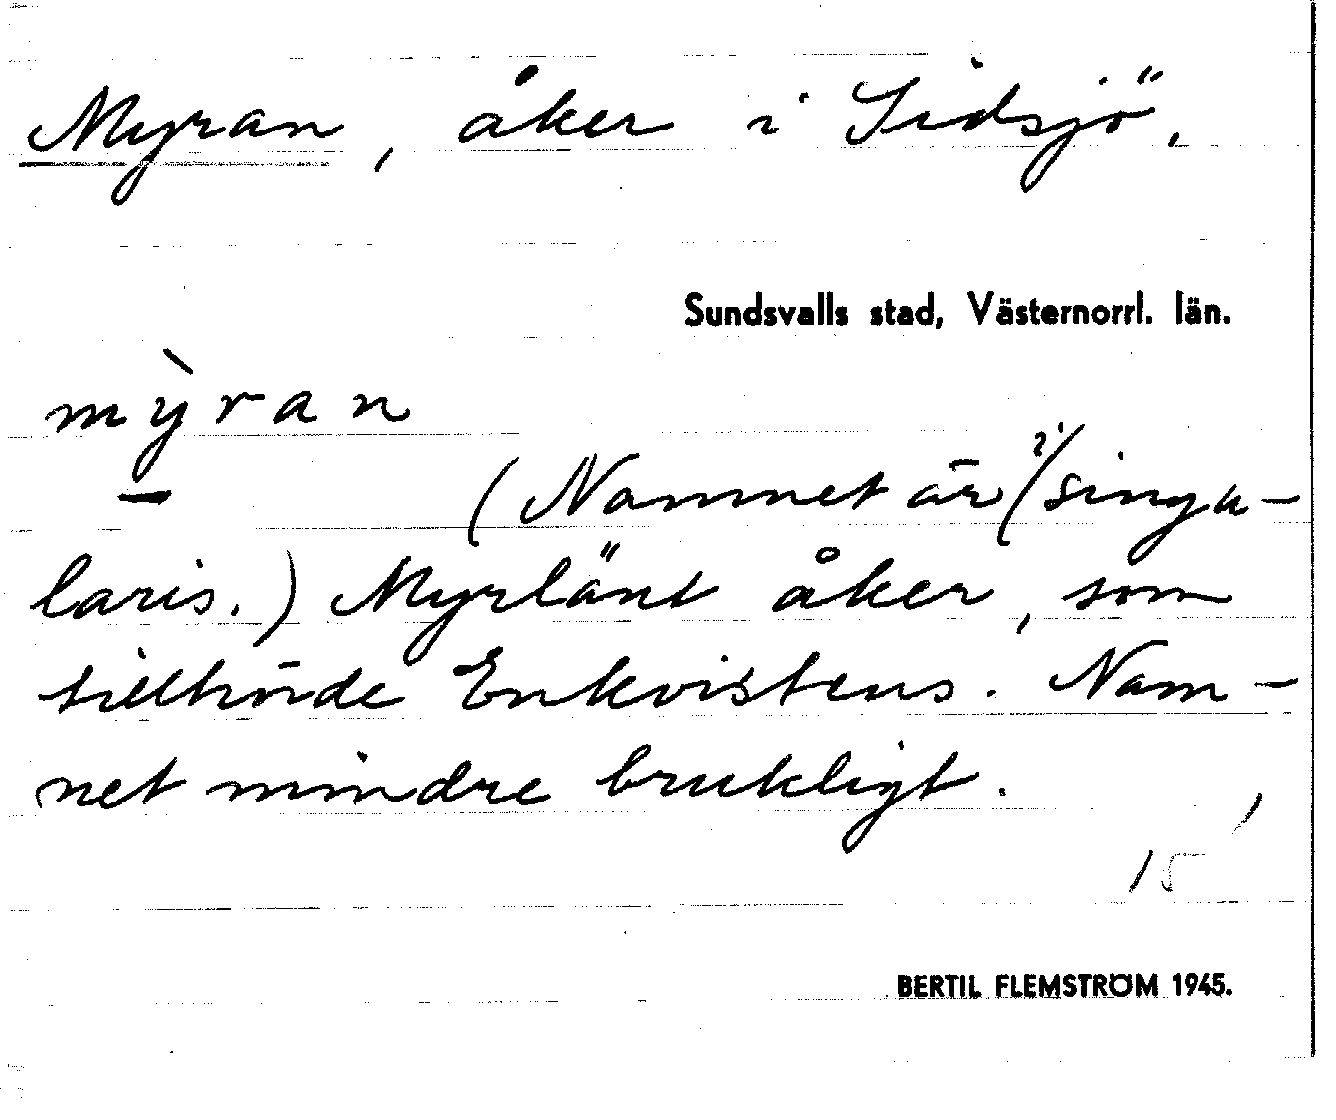 Myran, åker i Sidsjö.
Sundsvalls stad, Västernorrl. län.
mỳran
(Namnet är i singu-
laris.) Myrlänt åker, som
tillhörde Enkvistens. Nam-
net mindre brukligt.
15
BERTIL FLEMSTRÖM 1945.